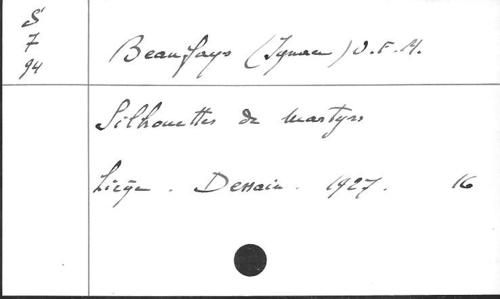 S
7
94
Beaufays (Ignace) O.F.M.
Silhouettes de martyrs
Liège. Dessain. 1927. 16